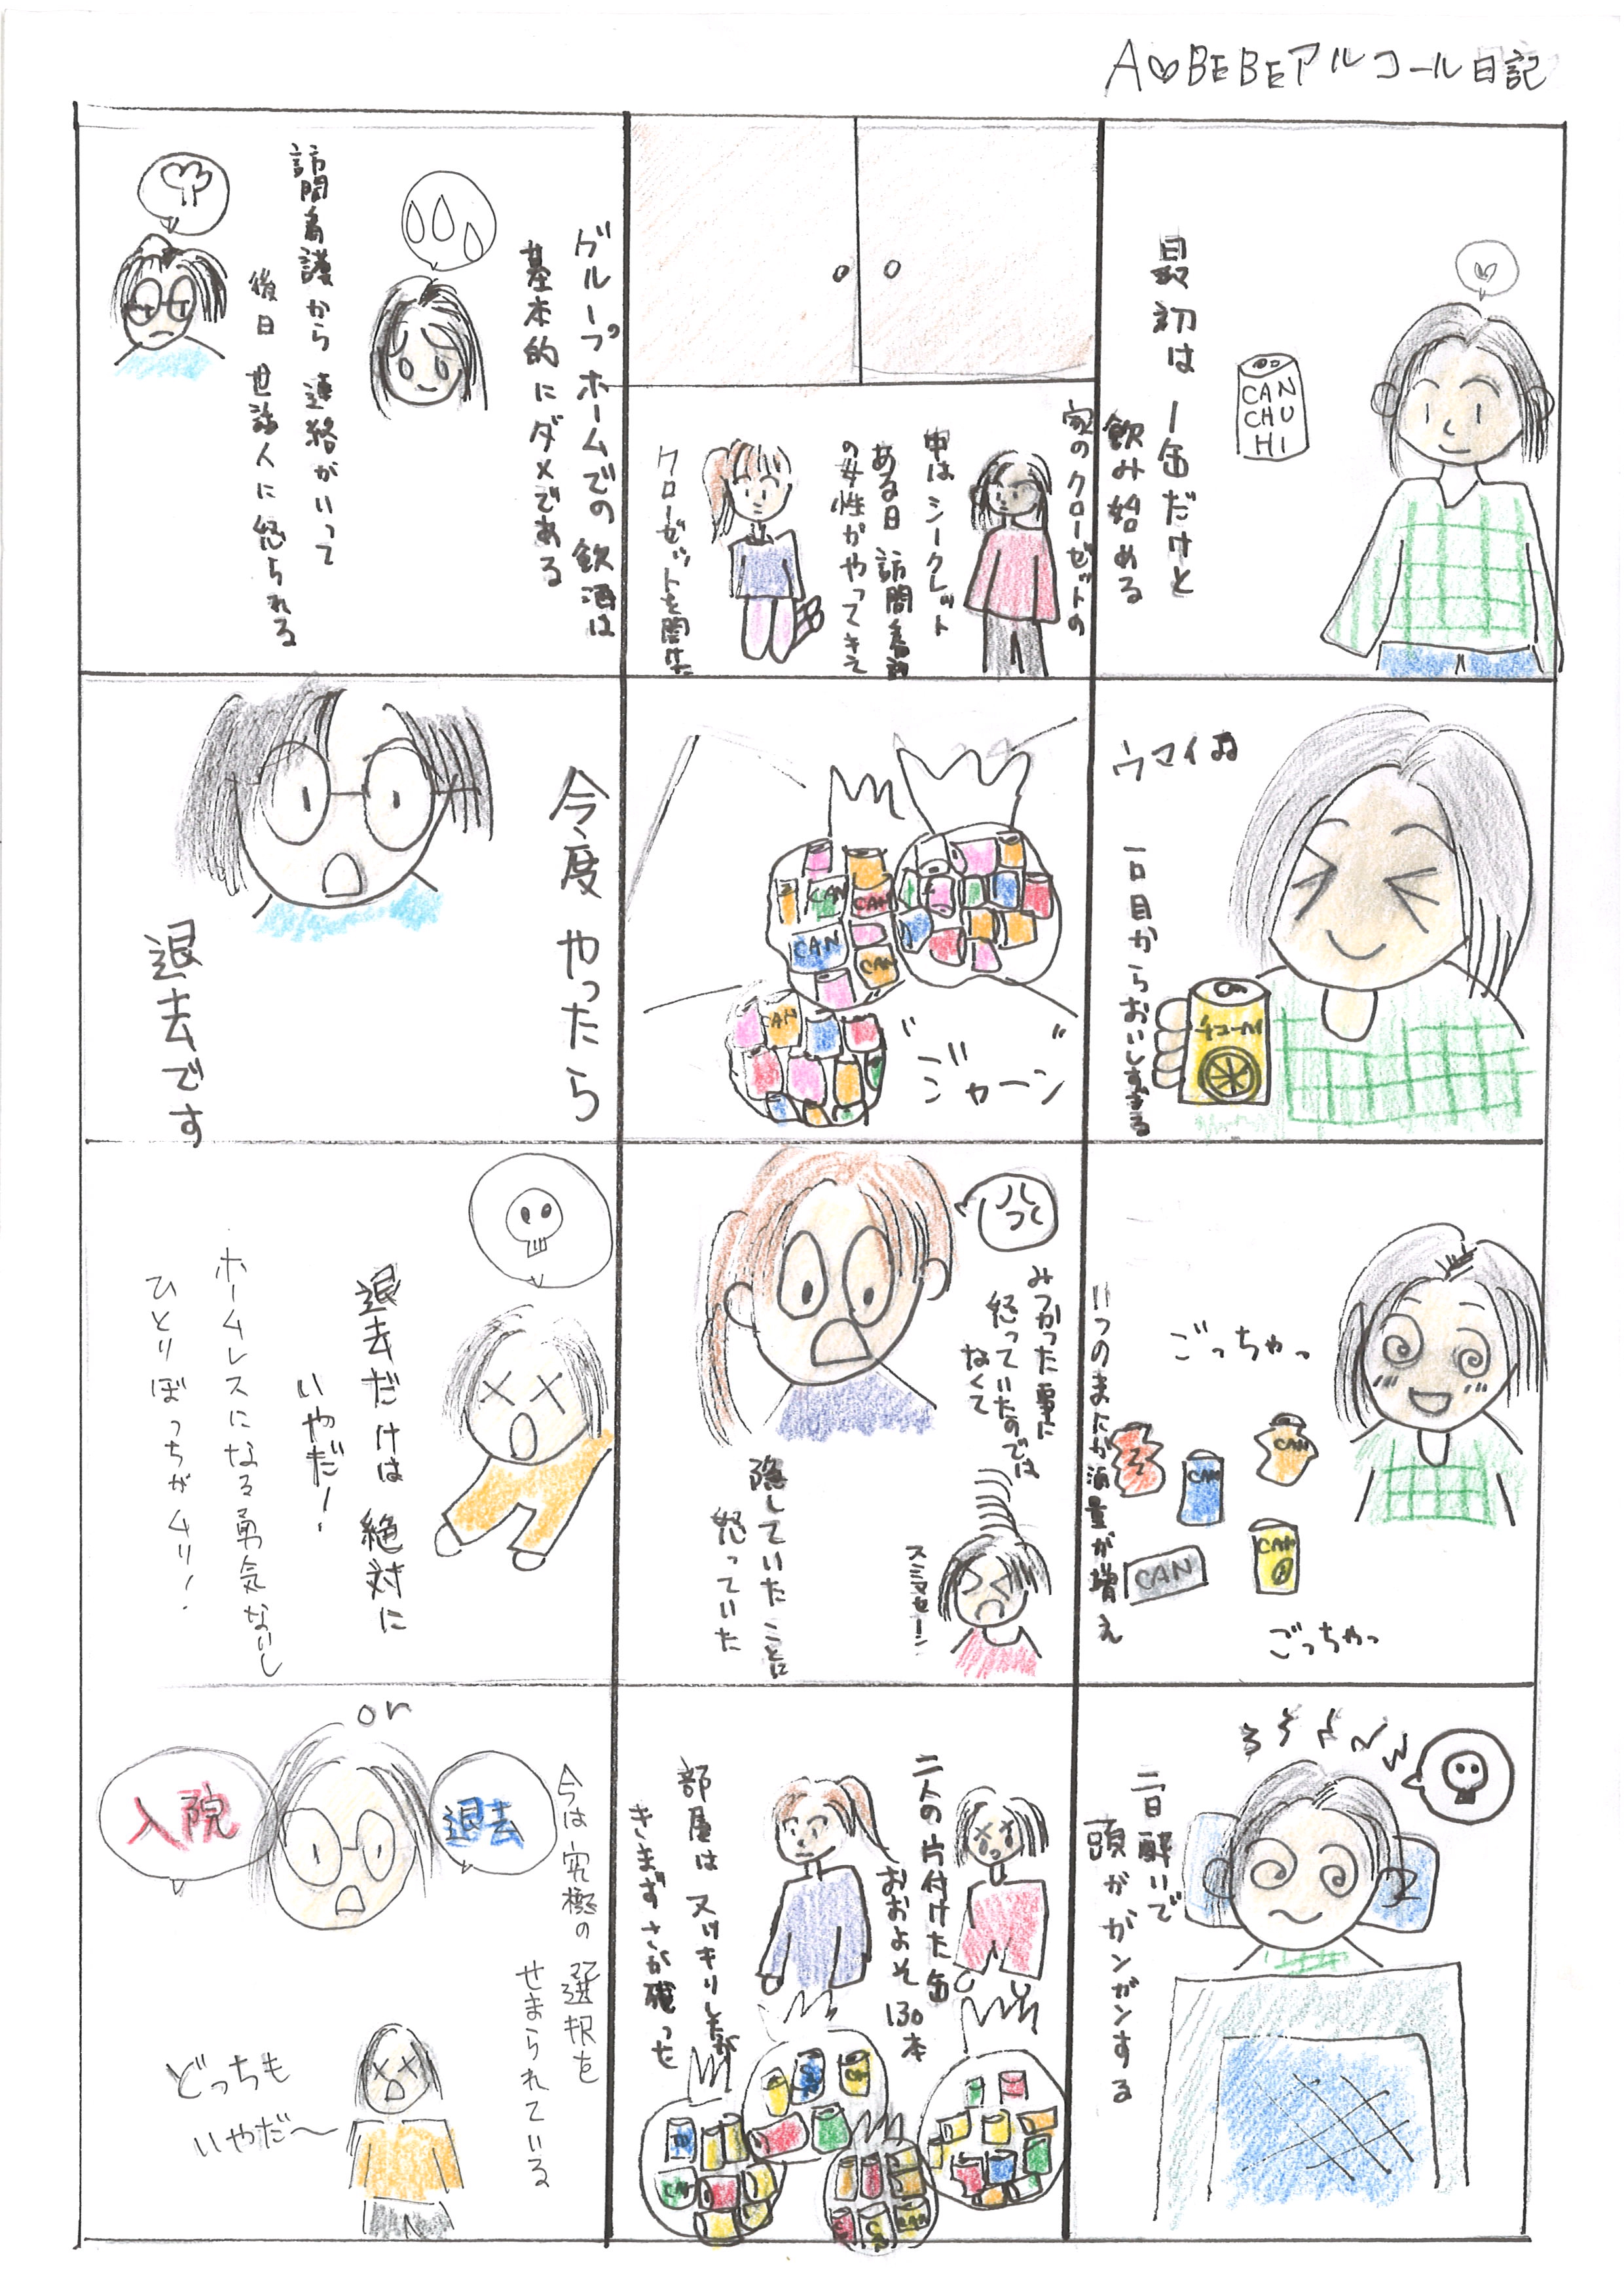 A♡BEBEアルコール日記
最初は1缶だけと
飲み始める
CAN
CHU
HI
ウマイ♫
一口目からおいしすぎる
チューハイ
ごっちゃっ
いつのまにか酒量が増え
CAN
CAN
CAN
CAN
ごっちゃっ
二日酔いで
頭がガンガンする
家のクローゼットの
中はシークレット
ある日訪問看護
の女性がやってきて
クローゼットを開けた
CAN
CAN
CAN
CAN
CAN
"ジャーン"
みつかった事に
怒っていたのでは
なくて
隠していたことに
怒っていた
スミマセーン
二人の片付けた缶
おおよそ130本
部屋はスッキリしたが
きまずさが残った
グループホームでの飲酒は
基本的にダメである
訪問看護から連絡がいって
後日世話人に怒られる
今度やったら
退去です
退去だけは絶対に
いやだ!
ホームレスになる勇気ないし
ひとりぼっちがムリ!
今は究極の選択を
せまられている
退去
or
入院
どっちも
いやだ〜